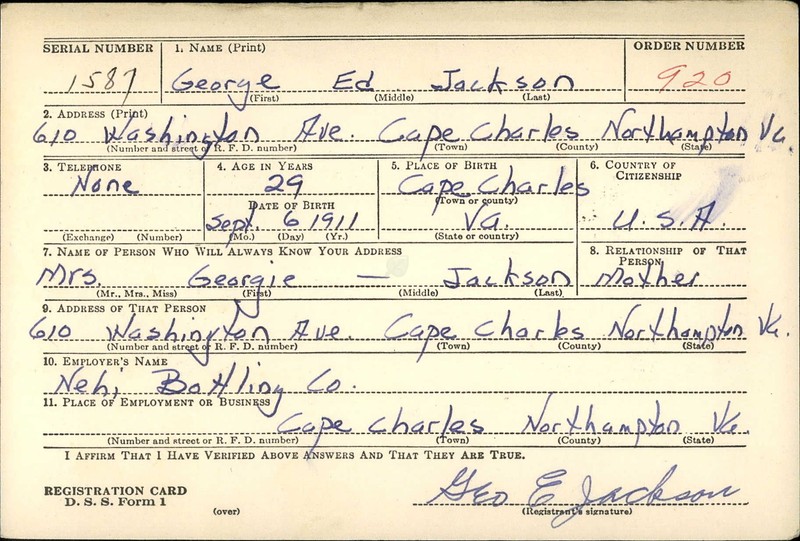 SERIAL NUMBER 1. NAME (Print) ORDER NUMBER
1587 George Ed Jackson 920
(First) (Middle) (Last)
2. ADDRESS (Print)
610 Washington Ave. Cape Charles Northampton Va.
(Number and street or R. F. D. number) (Town) (County) (State)
3. TELEPHONE 4. AGE IN YEARS 5. PLACE OF BIRTH 6. COUNTRY OF CITIZENSHIP
None 29 Cape Charles
DATE OF BIRTH (Town or county)
Sept. 6 1911 Va. U.S.A.
(Exchange) (Number) (Mo.) (Day) (Yr.) (State or country)
7. NAME OF PERSON WHO WILL ALWAYS KNOW YOUR ADDRESS 8. RELATIONSHIP OF THAT PERSON
Mrs. Georgie — Jackson Mother
(Mr., Mrs., Miss) (First) (Middle) (Last)
9. ADDRESS OF THAT PERSON
610 Washington Ave. Cape Charles Northampton Va.
(Number and street or R. F. D. number) (Town) (County) (State)
10. EMPLOYER'S NAME
Nehi Bottling Co.
11. PLACE OF EMPLOYMENT OR BUSINESS
Cape Charles Northampton Va.
(Number and street or R. F. D. number) (Town) (County) (State)
I AFFIRM THAT I HAVE VERIFIED ABOVE ANSWERS AND THAT THEY ARE TRUE.
REGISTRATION CARD Geo E Jackson
D. S. S. Form 1 (over) (Registrant's signature)